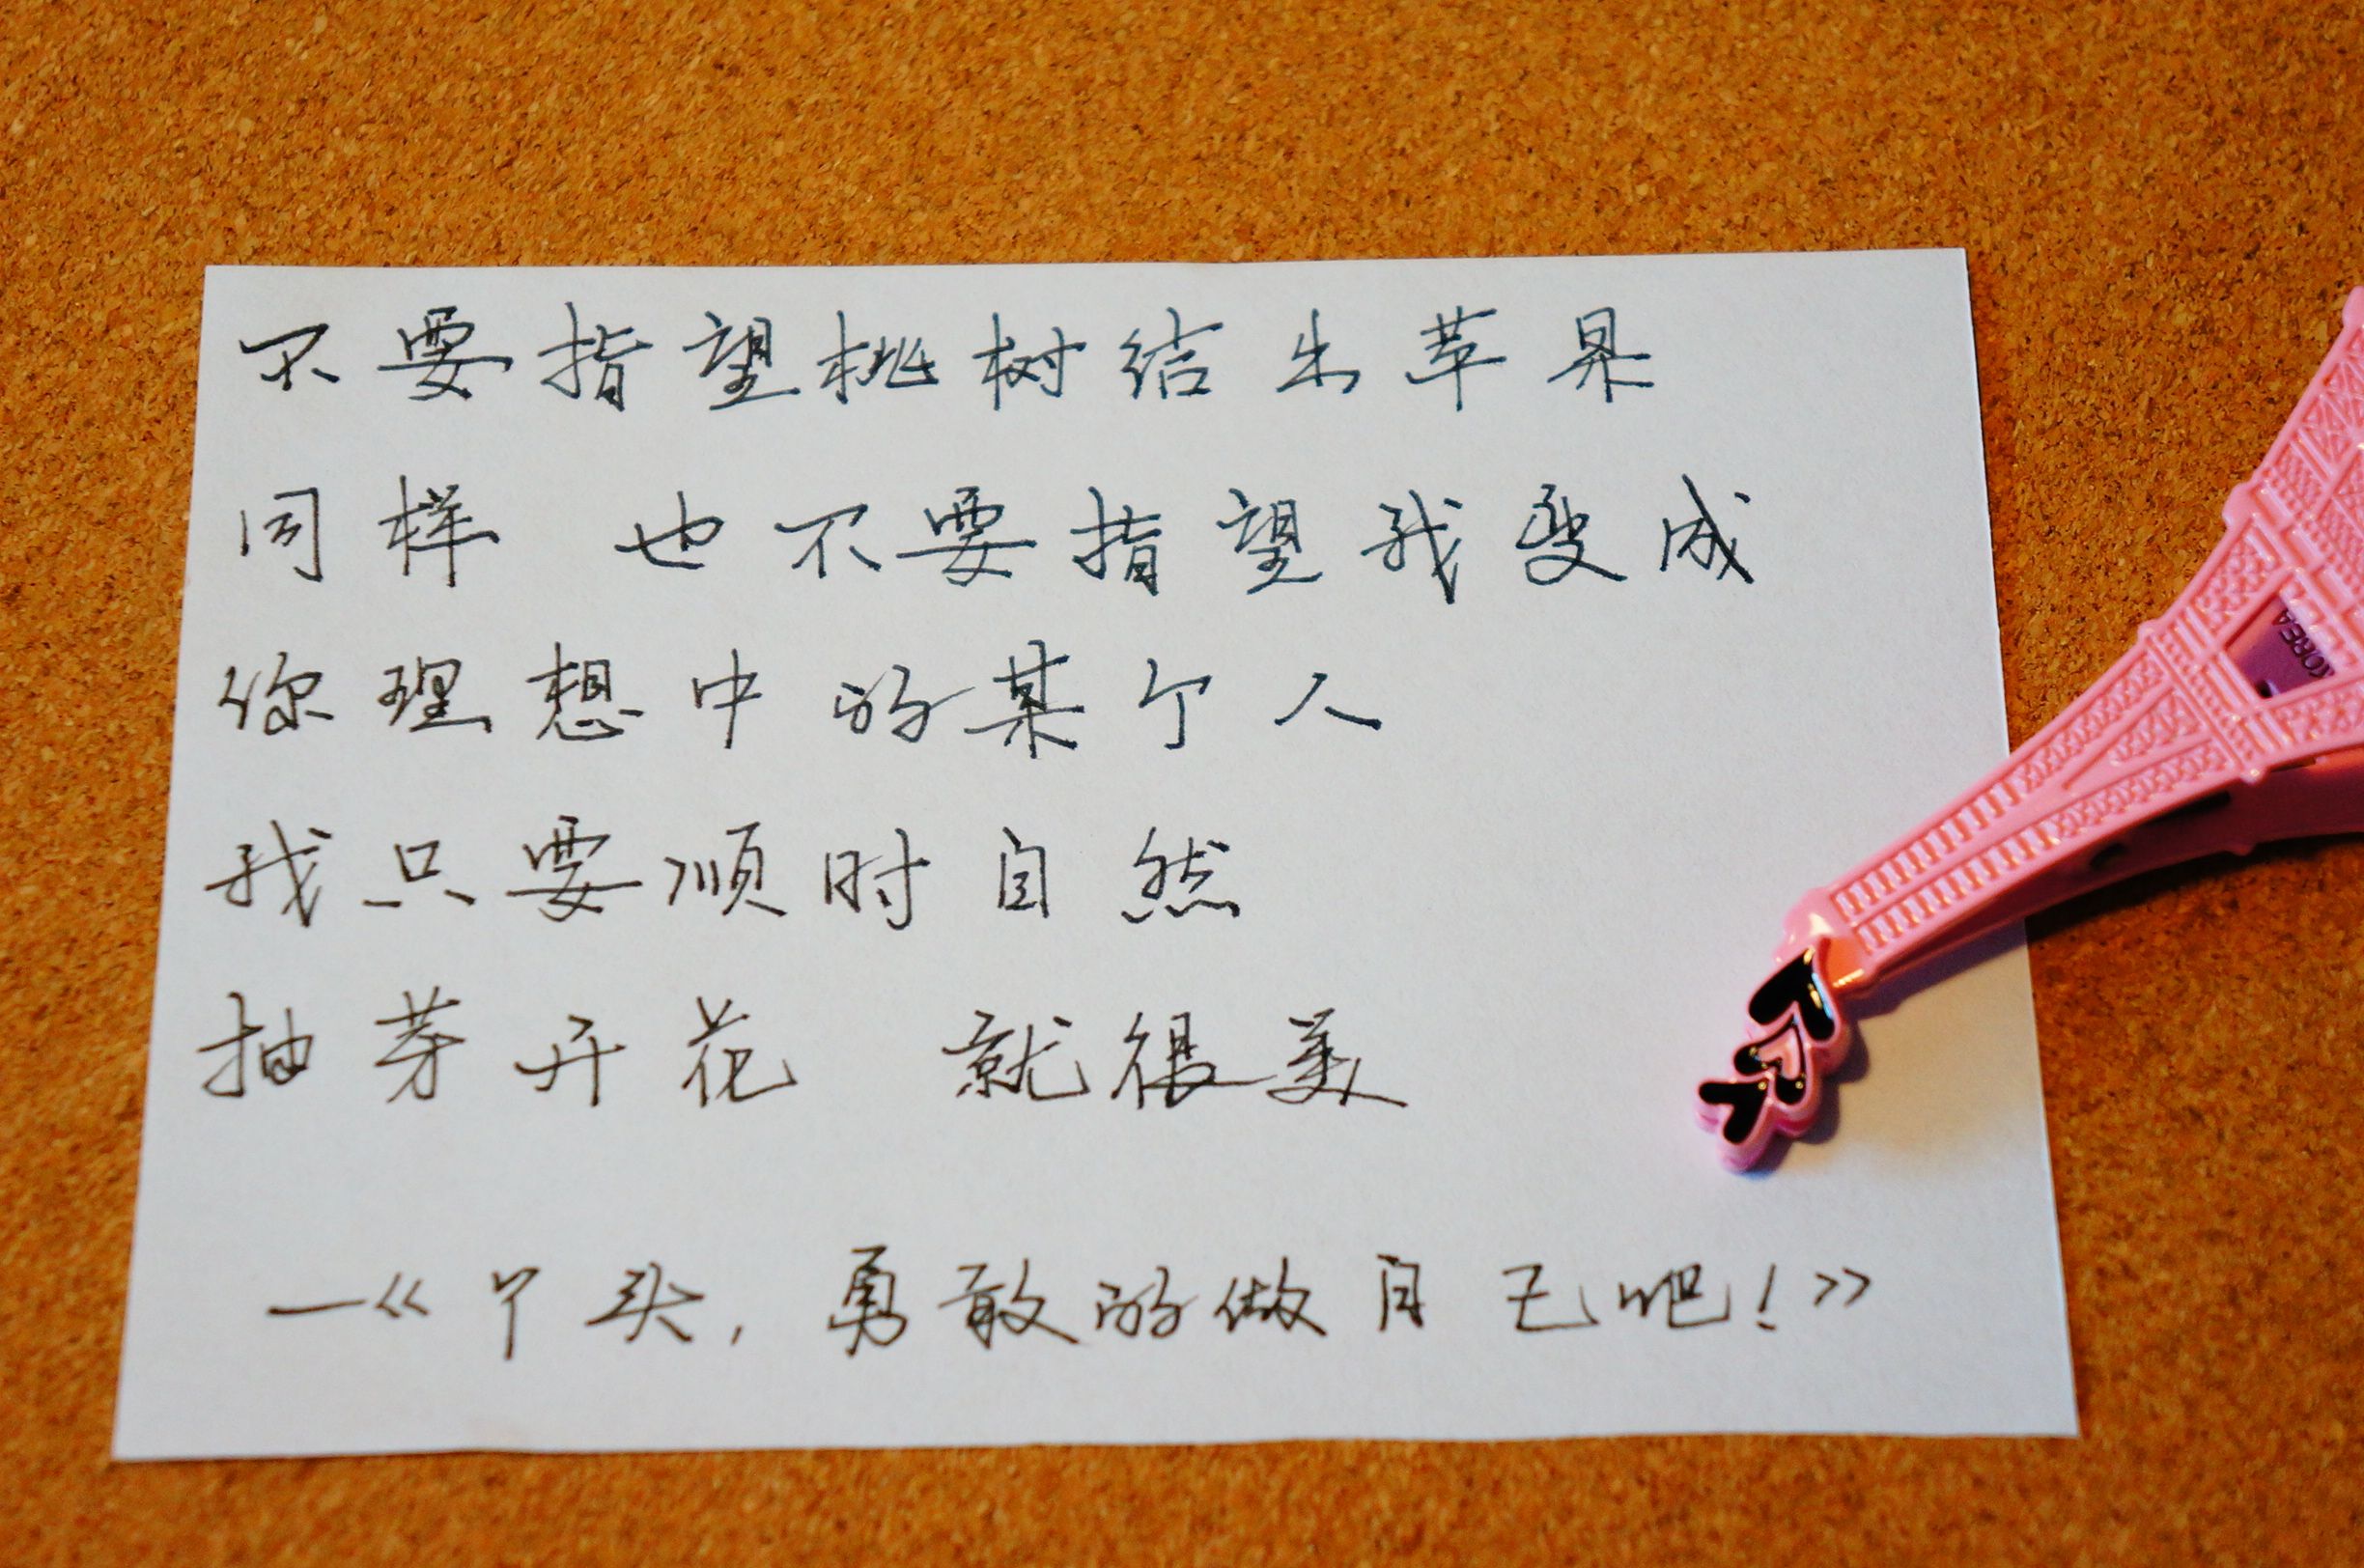 不要指望桃树结出苹果
同样 也不要指望我变成
你理想中的某个人
我只要顺时自然
抽芽开花 就很美
—《丫头，勇敢的做自己吧！》
KOREA